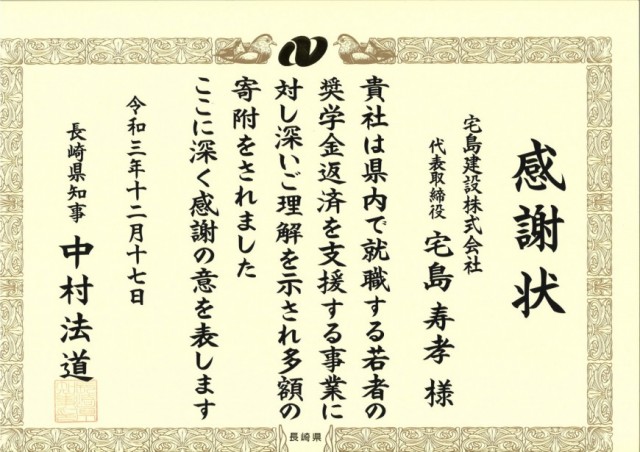 感謝状
宅島建設株式会社
代表取締役 宅島寿孝 様
貴社は県内で就職する若者の
奨学金返済を支援する事業に
対し深いご理解を示され多額の
寄附をされました
ここに深く感謝の意を表します
令和三年十二月十七日
長崎県知事 中村法道
長崎県